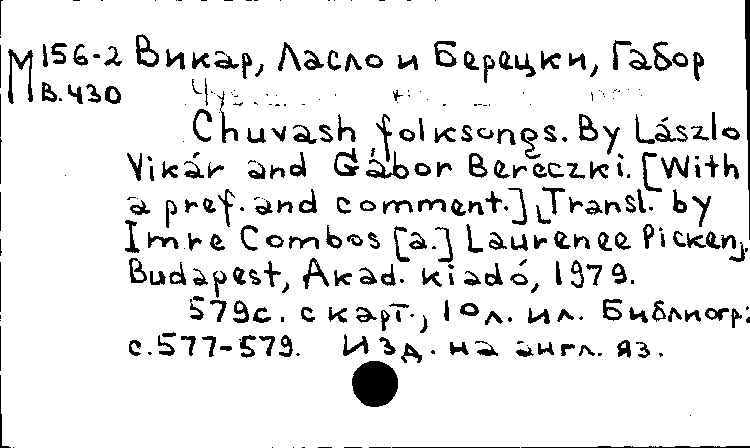 М 156-2 Викар, Ласло и Берецки, Габор
В.430
Chuvash folksongs. By László
Vikár and Gábor Bereczki. [With
a pref. and comment.] [Transl. by
Imre Combos [a.] Laurence Picken].
Budapest, Akad. kiadó, 1979.
579с. с карт., 10л. ил. Библиогр.:
с.577-579. Изд. на англ. яз.